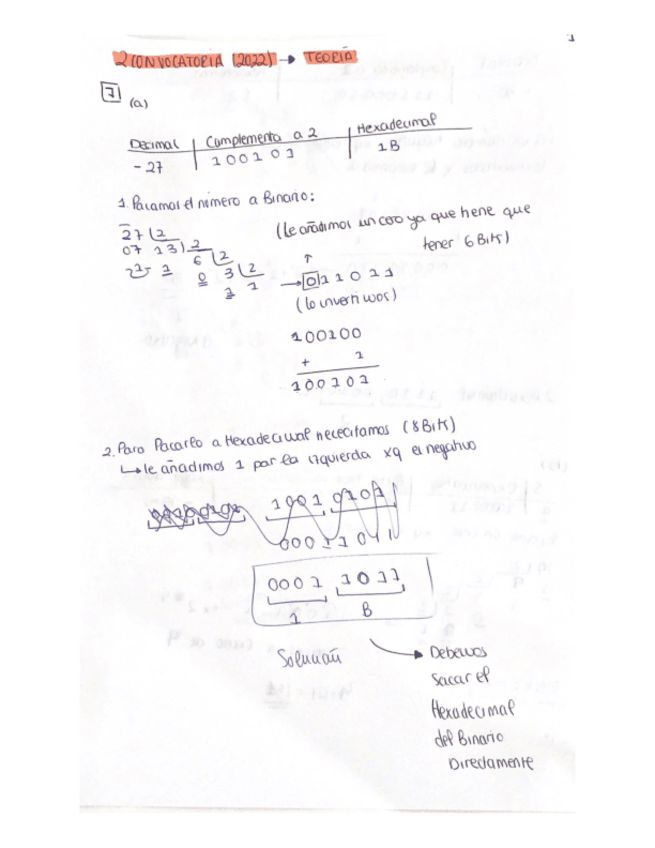 2 CONVOCATORIA (2022) → TEORÍA
1
(a)
Decimal | Complemento a 2 | Hexadecimal
- 27 | 100101 | 1B
1. Pasamos el número a Binario:
(Le añadimos un cero ya que tiene que
tener 6 Bits)
27 | 2
07 13 | 2
6 | 2
1 1 0 3 | 2
1 1
→ 011011
(lo invertimos)
100100
+ 1
100101
2. Para Pasarlo a Hexadecimal necesitamos (8 Bits)
↳ le añadimos 1 por la izquierda xq es negativo
1001 0101
00011011
0001 1011
1 B
Solución
→ Debemos
sacar el
Hexadecimal
del Binario
Directamente